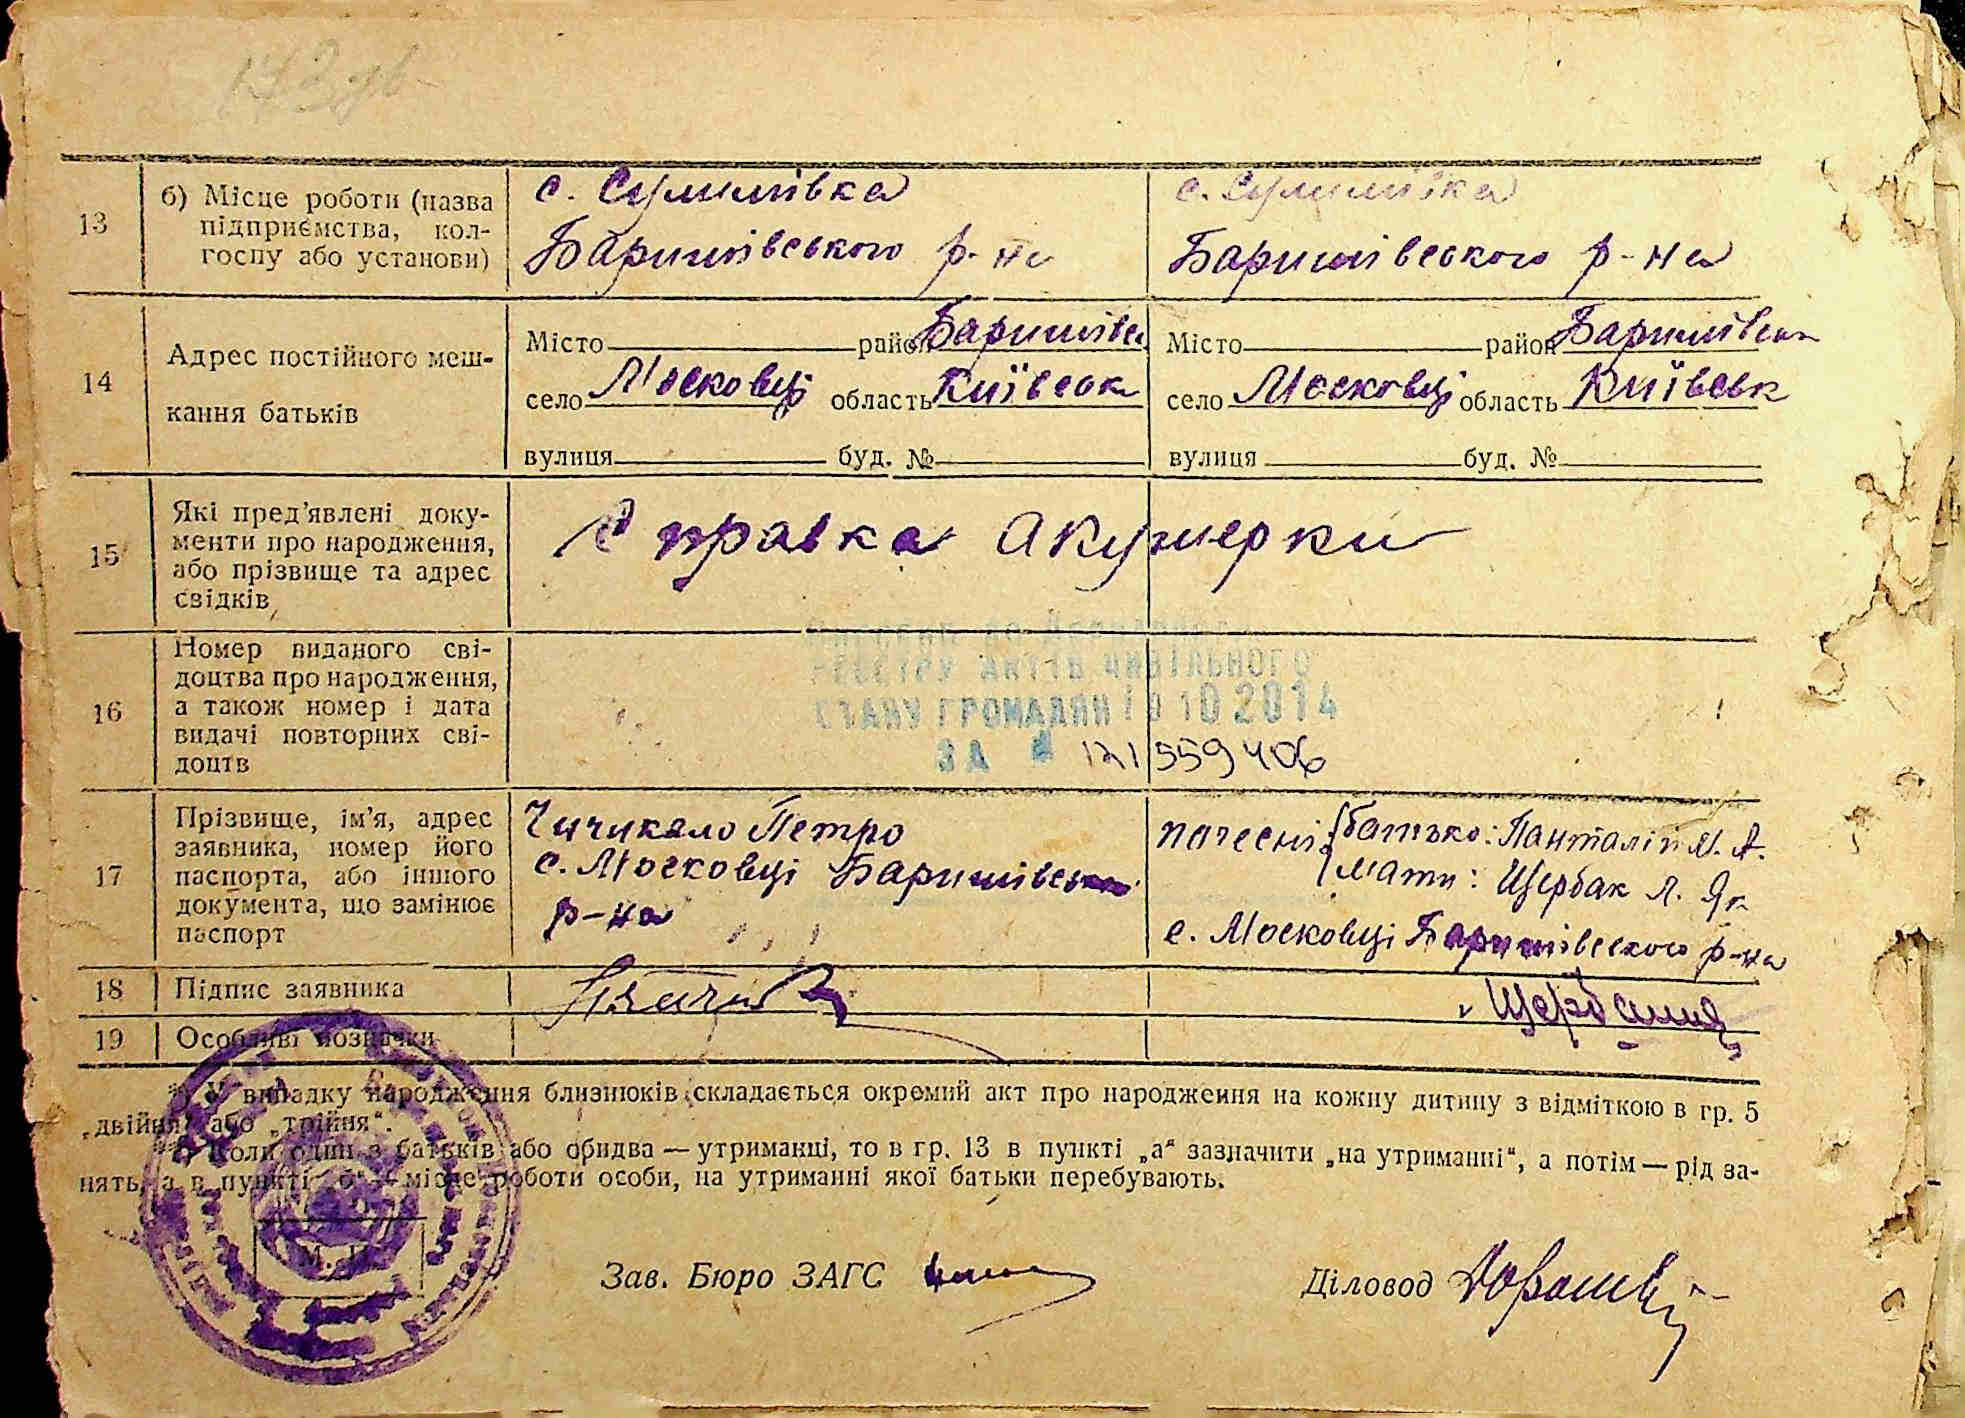 13
б) Місце роботи (назва
підприємства, кол-
госпу або установи)
с. Сулимівка
Баришівського р-на
с. Сулимівка
Баришівського р-на
14
Адрес постійного меш-
кання батьків
Місто район Баришівськ
село Московці область Київськ
вулиця буд. №
Місто район Баришівськ
село Московці область Київськ
вулиця буд. №
15
Які пред'явлені доку-
менти про народження,
або прізвище та адрес
свідків
Справка акушерки
16
Номер виданого сві-
доцтва про народження,
а також номер і дата
видачі повторних сві-
доцтв
Внесено до Державного
РЕЄСТРУ АКТІВ ЦИВІЛЬНОГО
СТАНУ ГРОМАДЯН 10 2014
ЗА 121559406
17
Прізвище, ім'я, адрес
заявника, номер його
паспорта, або іншого
документа, що замінює
паспорт
Чичикало Петро
с. Московці Баришівськ
р-на
почесні батько: Панталій М. А.
Мати: Щербак Л. Як
с. Московці Баришівського р-на
18
Підпис заявника
19
Особливі позначки
*) У випадку народження близнюків складається окремий акт про народження на кожну дитину з відміткою в гр. 5
„двійня“ або „трійня“.
Коли один з батьків або обидва — утриманці, то в гр. 13 в пункті „а“ зазначити „на утриманні“, а потім — рід за-
нять, а в пункті „б“ — місце роботи особи, на утриманні якої батьки перебувають.
М. П.
Зав. Бюро ЗАГС
Діловод